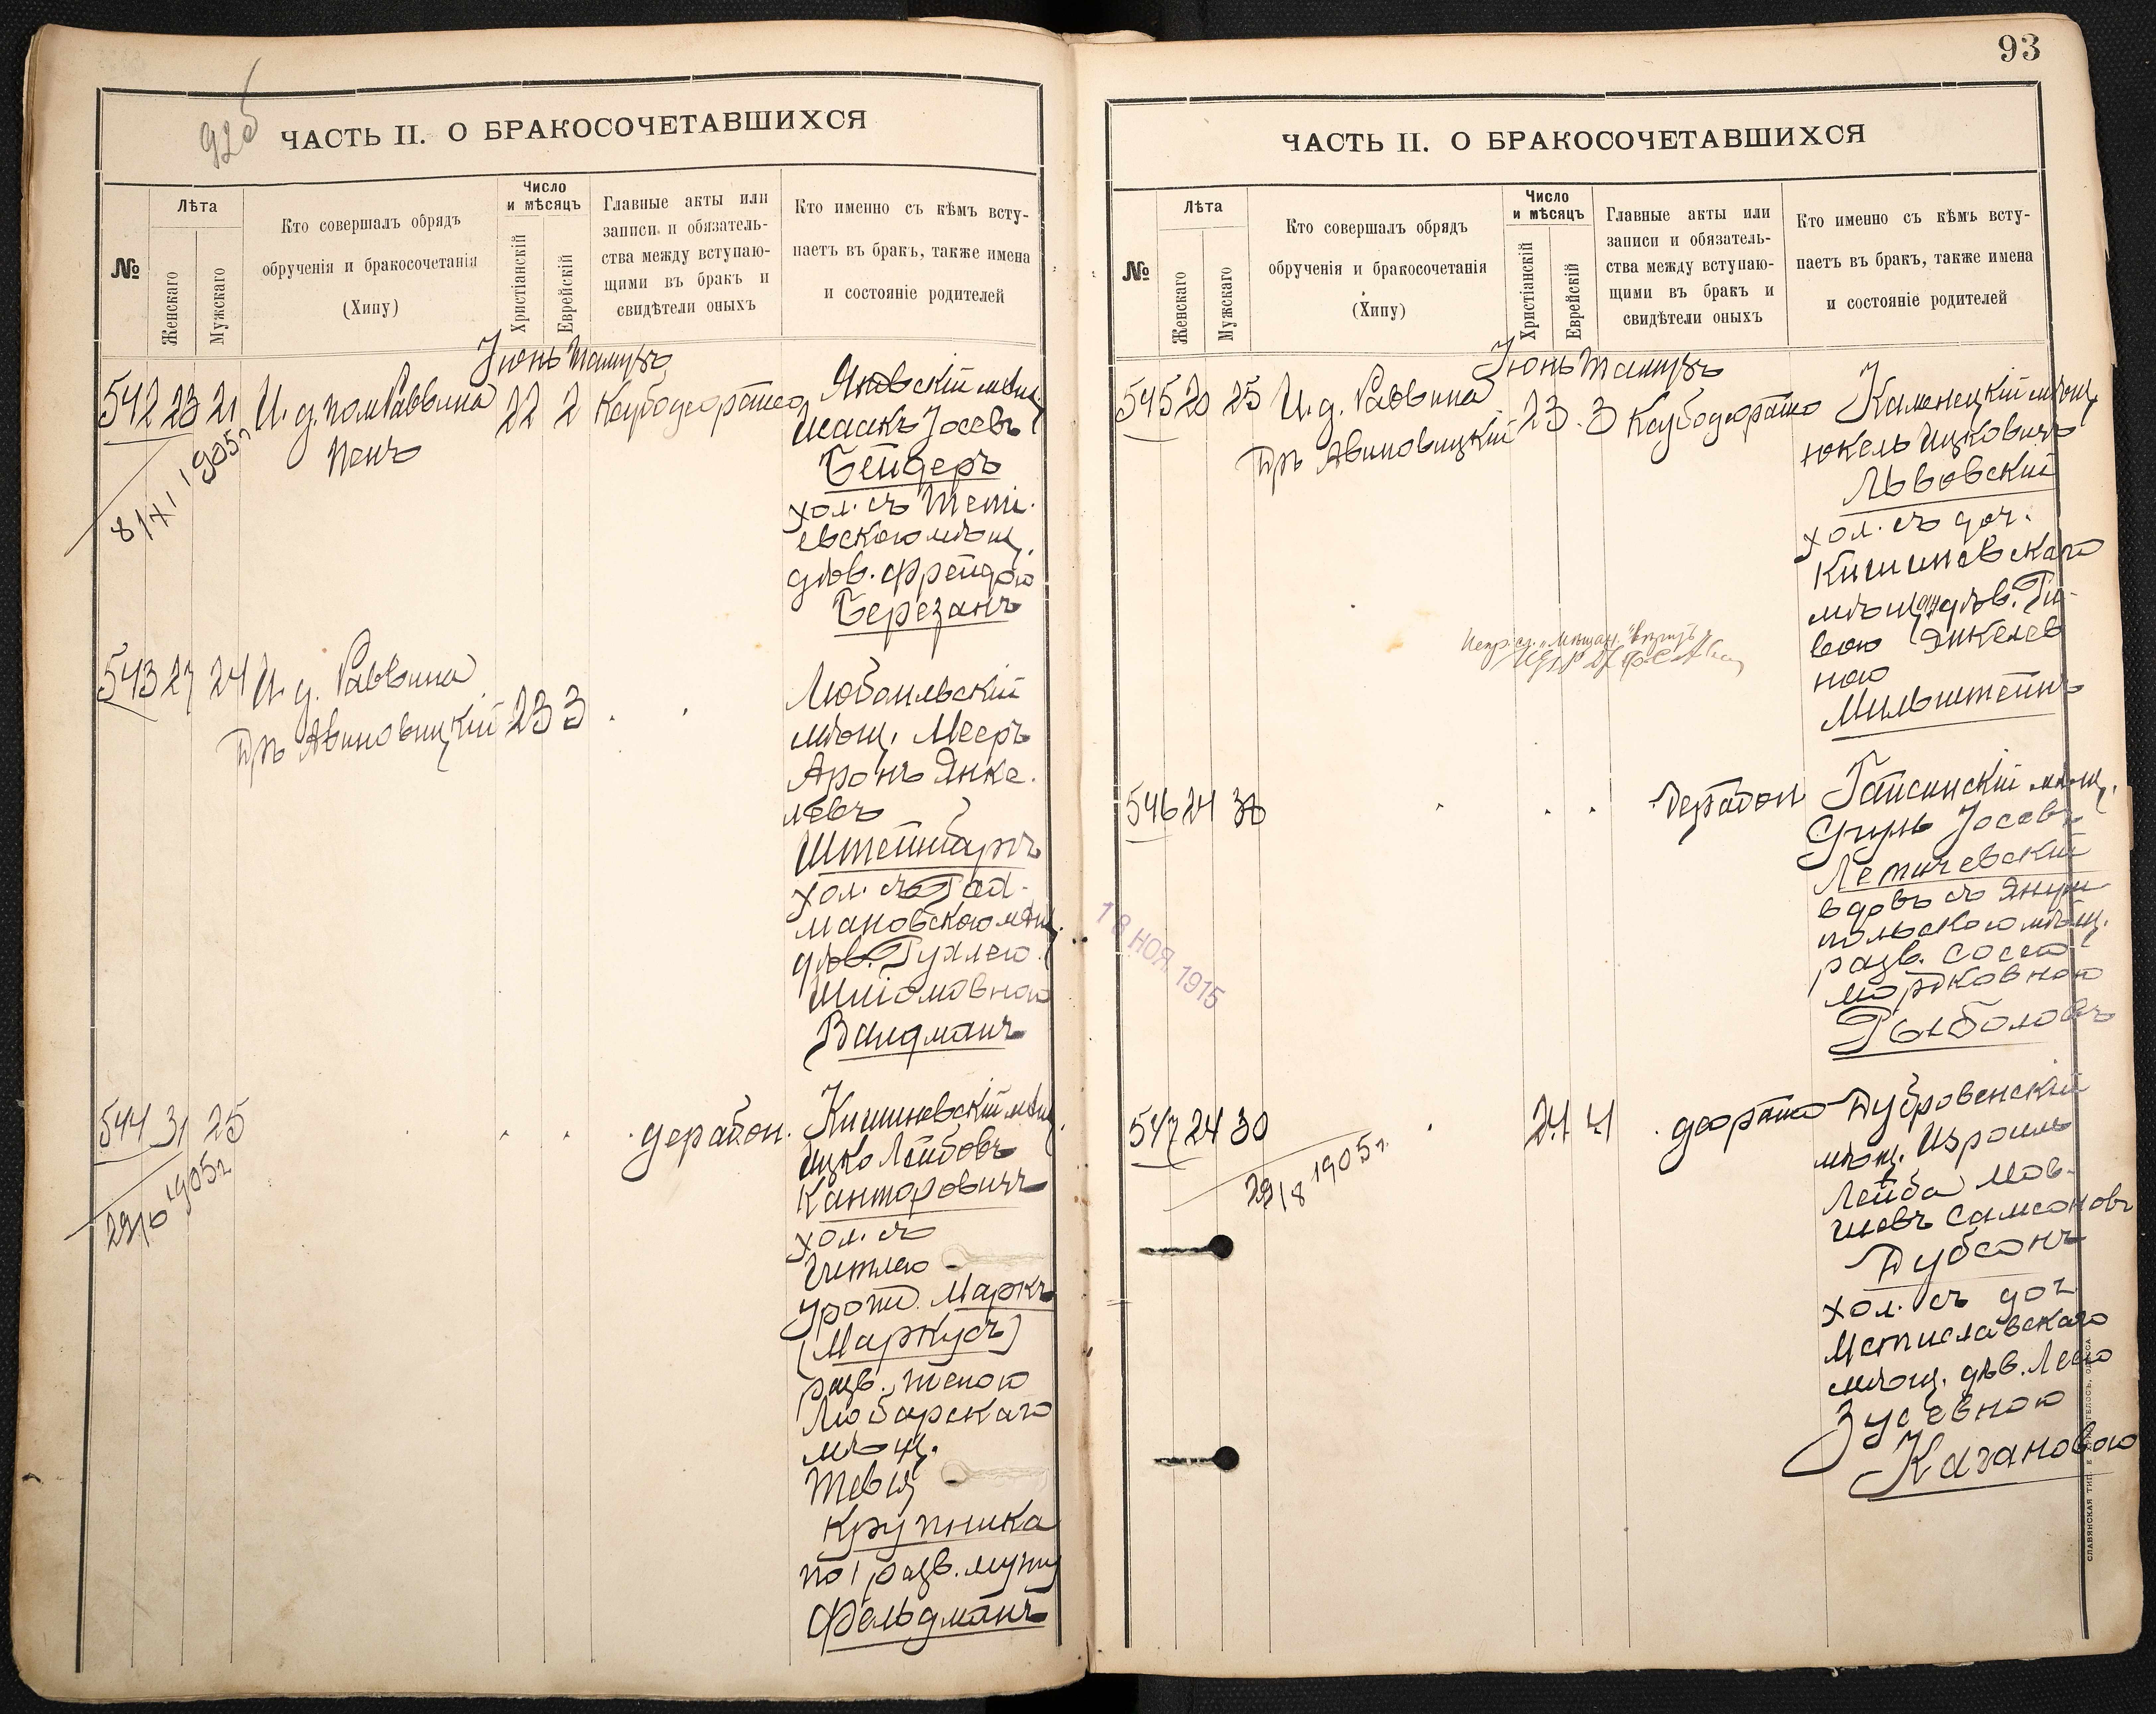 92об
ЧАСТЬ II. О БРАКОСОЧЕТАВШИХСЯ
№
Лѣта
Женскаго
Мужскаго
Кто совершалъ обрядъ
обрученія и бракосочетанія
(Хипу)
Число
и мѣсяцъ
Христіанскій
Еврейскій
Главные акты или
записи и обязатель-
ства между вступаю-
щими въ бракъ и
свидѣтели оныхъ
Кто именно съ кѣмъ всту-
паетъ въ бракъ, также имена
и состояніе родителей
Іюнь Тамузъ
542 23 21
И. д. пом Раввина
Пенъ
22 2
8/XI 1905г
мѣщ.
Исаакъ Іосевъ
Бейдеръ
хол. съ Тети-
евскою мѣщ.
дѣв. Фрейдою
Березанъ
543 27 24
И. д. Раввина
Дръ Авиновицкій
23 3
мѣщ. Мееръ
Аронъ Янке-
левъ
Штейнбаргъ
хол. съ Гай-
мановскою мѣщ.
дѣв. Рухлею
Шліомовною
Вайдманъ
544 31 25
29/6 1905г
дерабон.
Кишиневскій мѣщ.
Ицко Лейбовъ
Канторовичъ
хол. съ
Гитлею
урожд. Маркъ
(Маркусъ)
разв. женою
Любарскаго
мѣщ.
Тевья
Крупника
по 1 разв. мужу
Фельдманъ
93
ЧАСТЬ II. О БРАКОСОЧЕТАВШИХСЯ
№
Лѣта
Женскаго
Мужскаго
Кто совершалъ обрядъ
обрученія и бракосочетанія
(Хипу)
Число
и мѣсяцъ
Христіанскій
Еврейскій
Главные акты или
записи и обязатель-
ства между вступаю-
щими въ бракъ и
свидѣтели оныхъ
Кто именно съ кѣмъ всту-
паетъ въ бракъ, также имена
и состояніе родителей
Іюнь Тамузъ
545 20 25
И. д. Раввина
Дръ Авиновицкій
23 3
Каменецкій мѣщ.
Юкель Ицковичъ
Львовскій
хол. съ доч.
Кишиневскаго
мѣщ. дѣв. Ри-
вою Янкелев
ною
Мильштейнъ
546 24 38
дерабон
Гайсинскій мѣщ.
Сруль Іосевъ
Летичевскій
вдовъ съ Януш
польскою мѣщ.
разв. Сосею
Мордковною
Рыболовъ
18 НОЯ. 1915
547 24 30
29/8 1905г.
24 4
деорайто
Дубровенскій
мѣщ. Израиль
Лейба Мов-
шевъ Самсоновъ
Дубсонъ
хол. съ доч
Мстиславскаго
мѣщ. дѣв. Леею
Зусевною
Кагановою
СЛАВЯНСКАЯ ТИП. Е. ХРИСОГЕЛОСЪ, ОДЕССА